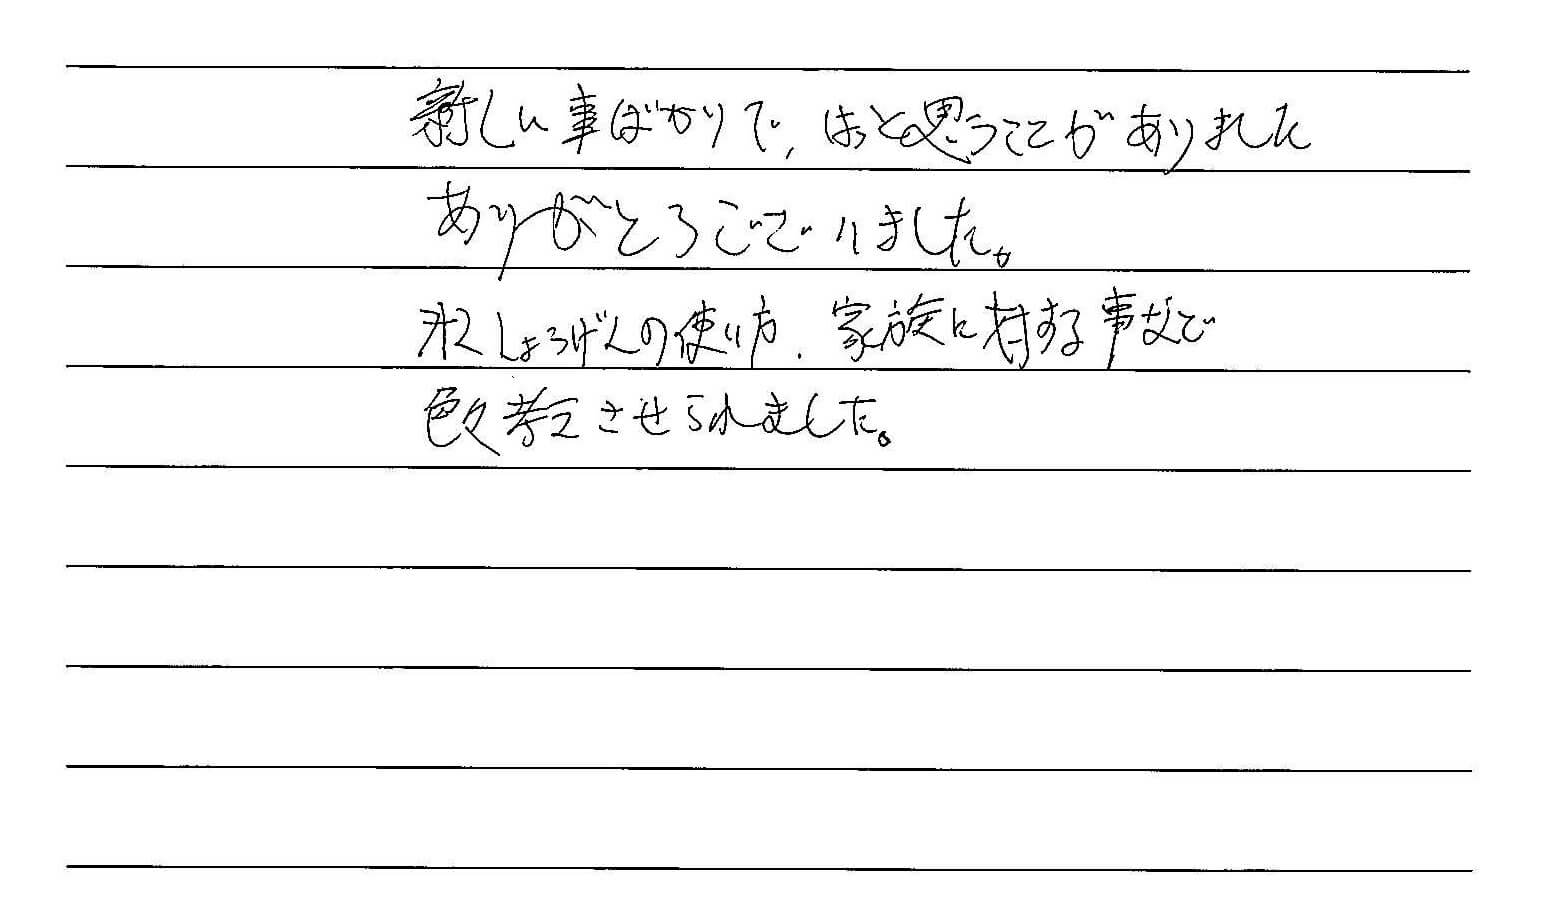 新しい事ばかりで，はっと思うことがありました
ありがとうございました。
しょうげんの使い方．家族に対する事などで
色々考えさせられました。